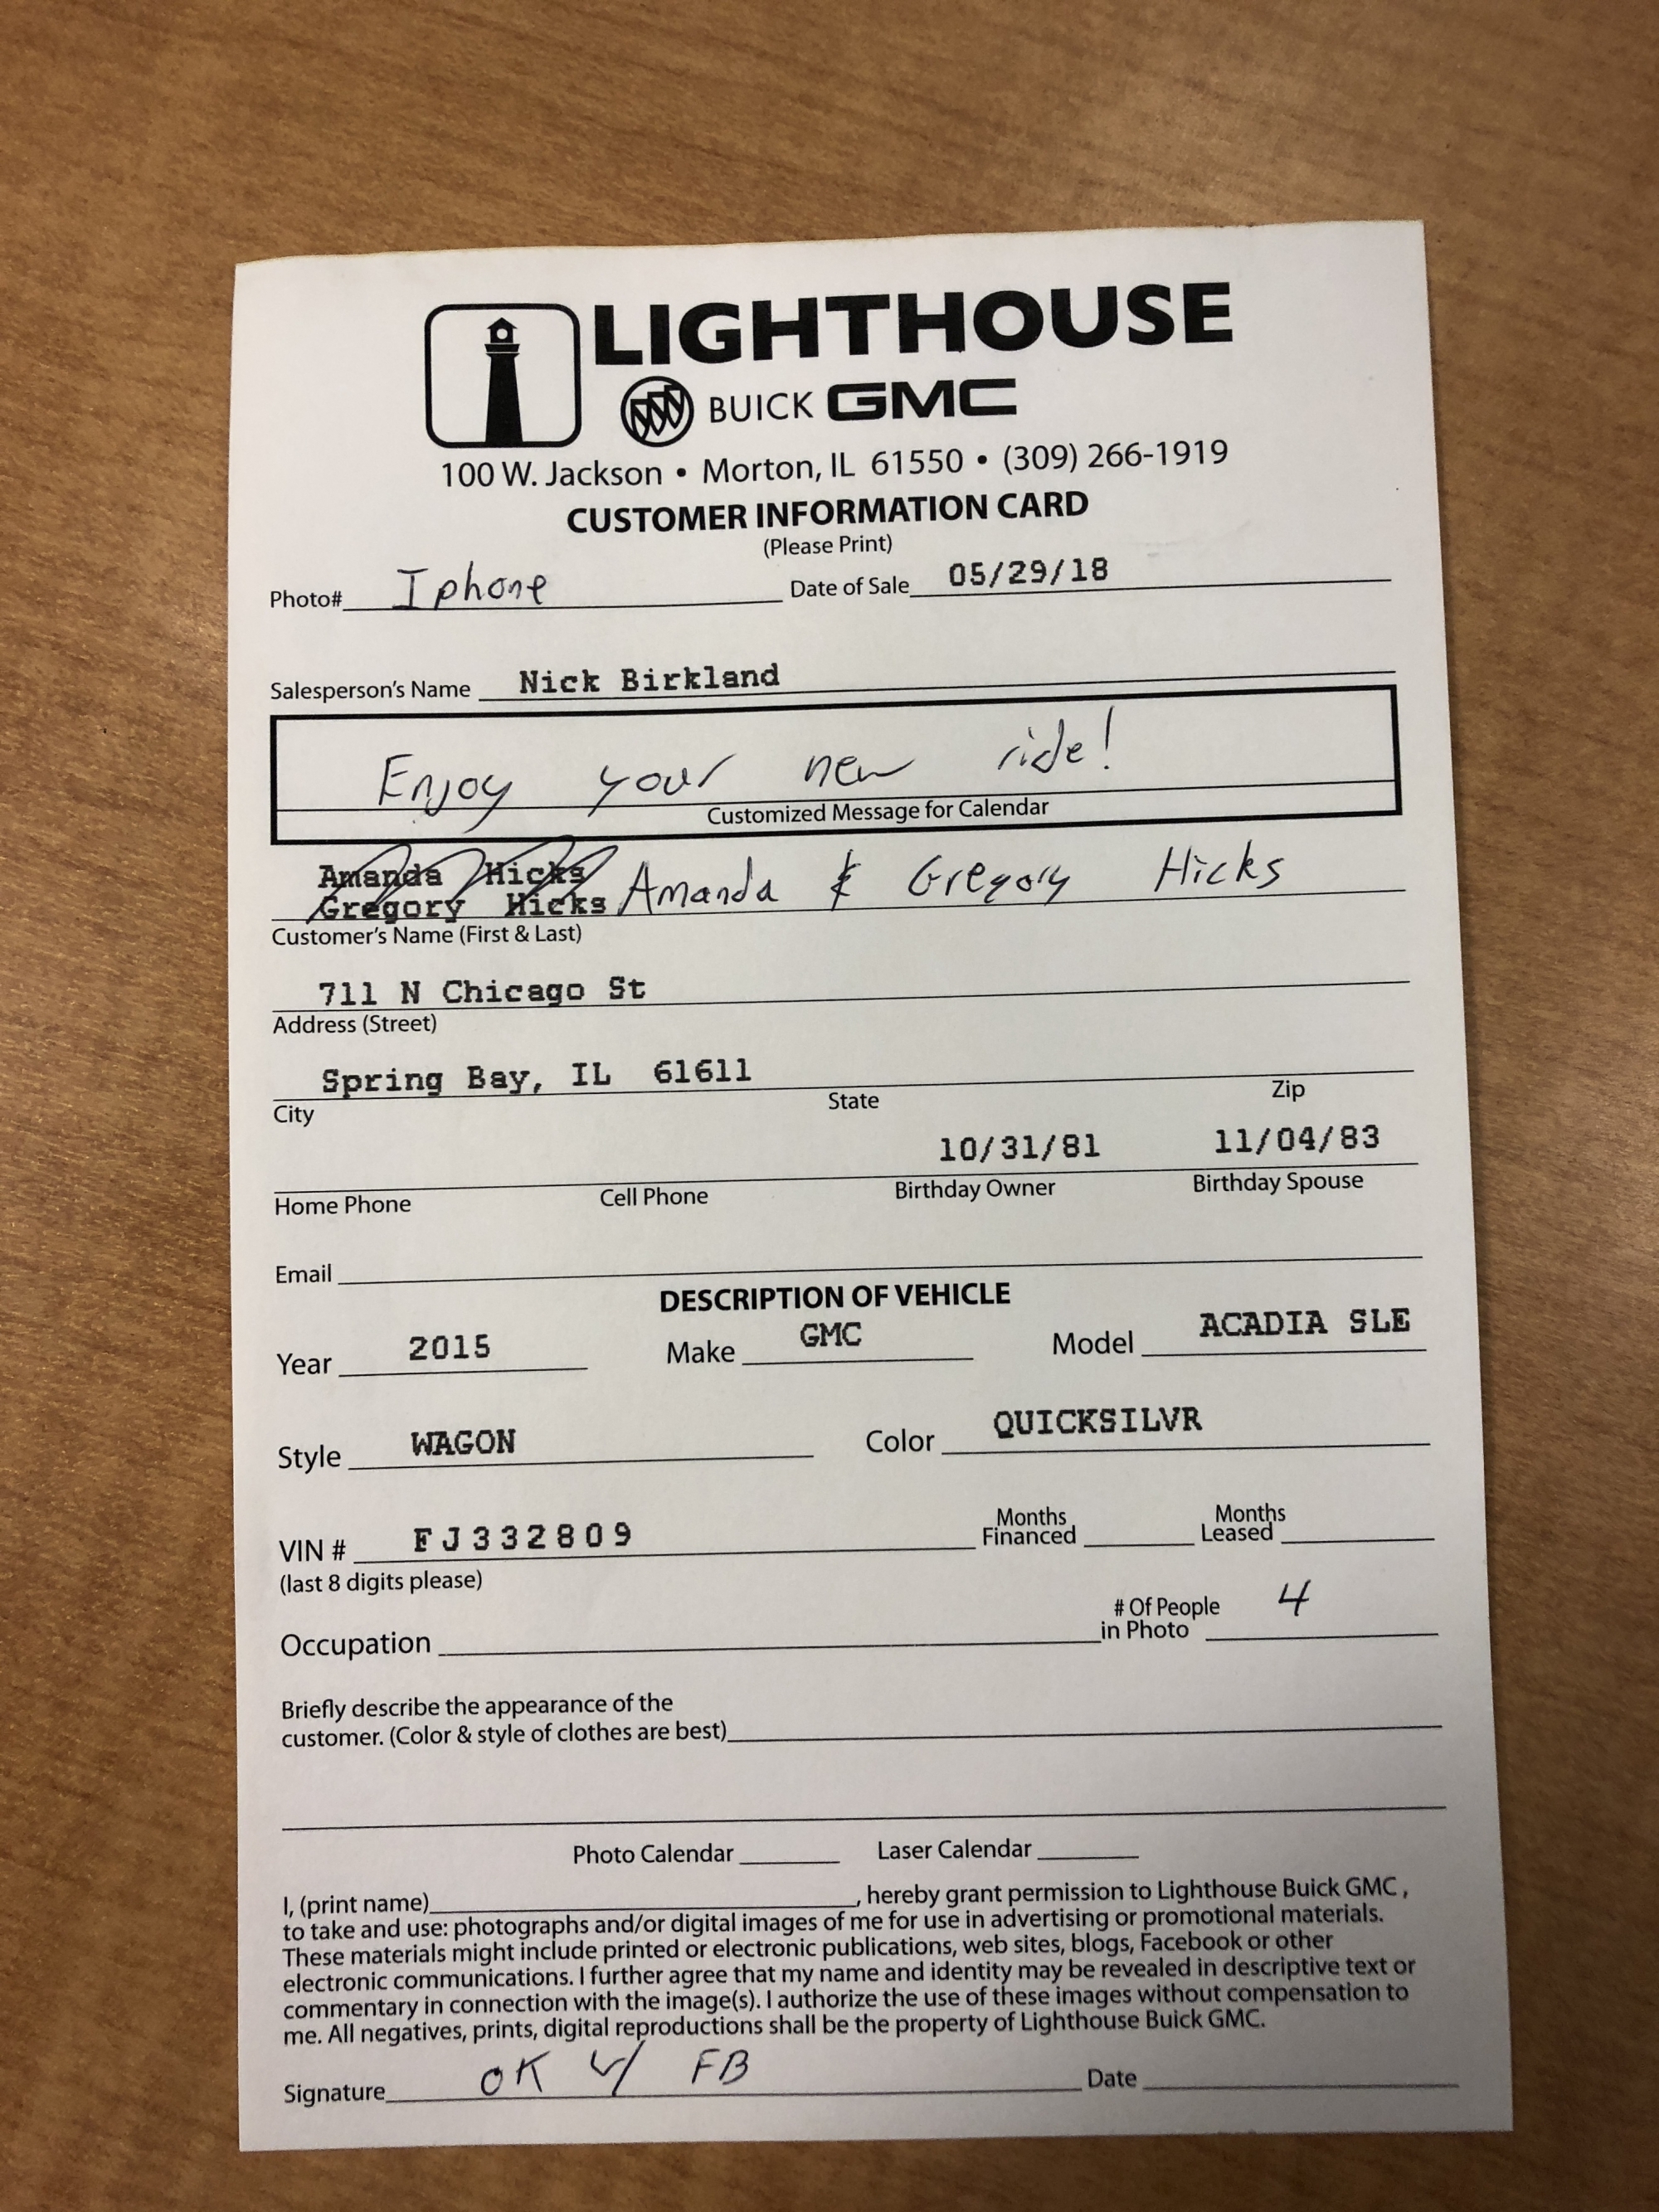 LIGHTHOUSE
BUICK GMC
100 W. Jackson • Morton, IL 61550 • (309) 266-1919
CUSTOMER INFORMATION CARD
(Please Print)
Photo# Iphone Date of Sale 05/29/18
Salesperson's Name Nick Birkland
Enjoy your new ride!
Customized Message for Calendar
Amanda Hicks
Gregory Hicks Amanda & Gregory Hicks
Customer's Name (First & Last)
711 N Chicago St
Address (Street)
Spring Bay, IL 61611
City State Zip
10/31/81 11/04/83
Home Phone Cell Phone Birthday Owner Birthday Spouse
Email
DESCRIPTION OF VEHICLE
Year 2015 Make GMC Model ACADIA SLE
Style WAGON Color QUICKSILVR
VIN # FJ332809 Months Financed Months Leased
(last 8 digits please)
Occupation # Of People in Photo 4
Briefly describe the appearance of the
customer. (Color & style of clothes are best)
Photo Calendar Laser Calendar
I, (print name) , hereby grant permission to Lighthouse Buick GMC ,
to take and use: photographs and/or digital images of me for use in advertising or promotional materials.
These materials might include printed or electronic publications, web sites, blogs, Facebook or other
electronic communications. I further agree that my name and identity may be revealed in descriptive text or
commentary in connection with the image(s). I authorize the use of these images without compensation to
me. All negatives, prints, digital reproductions shall be the property of Lighthouse Buick GMC.
Signature OK w/ FB Date